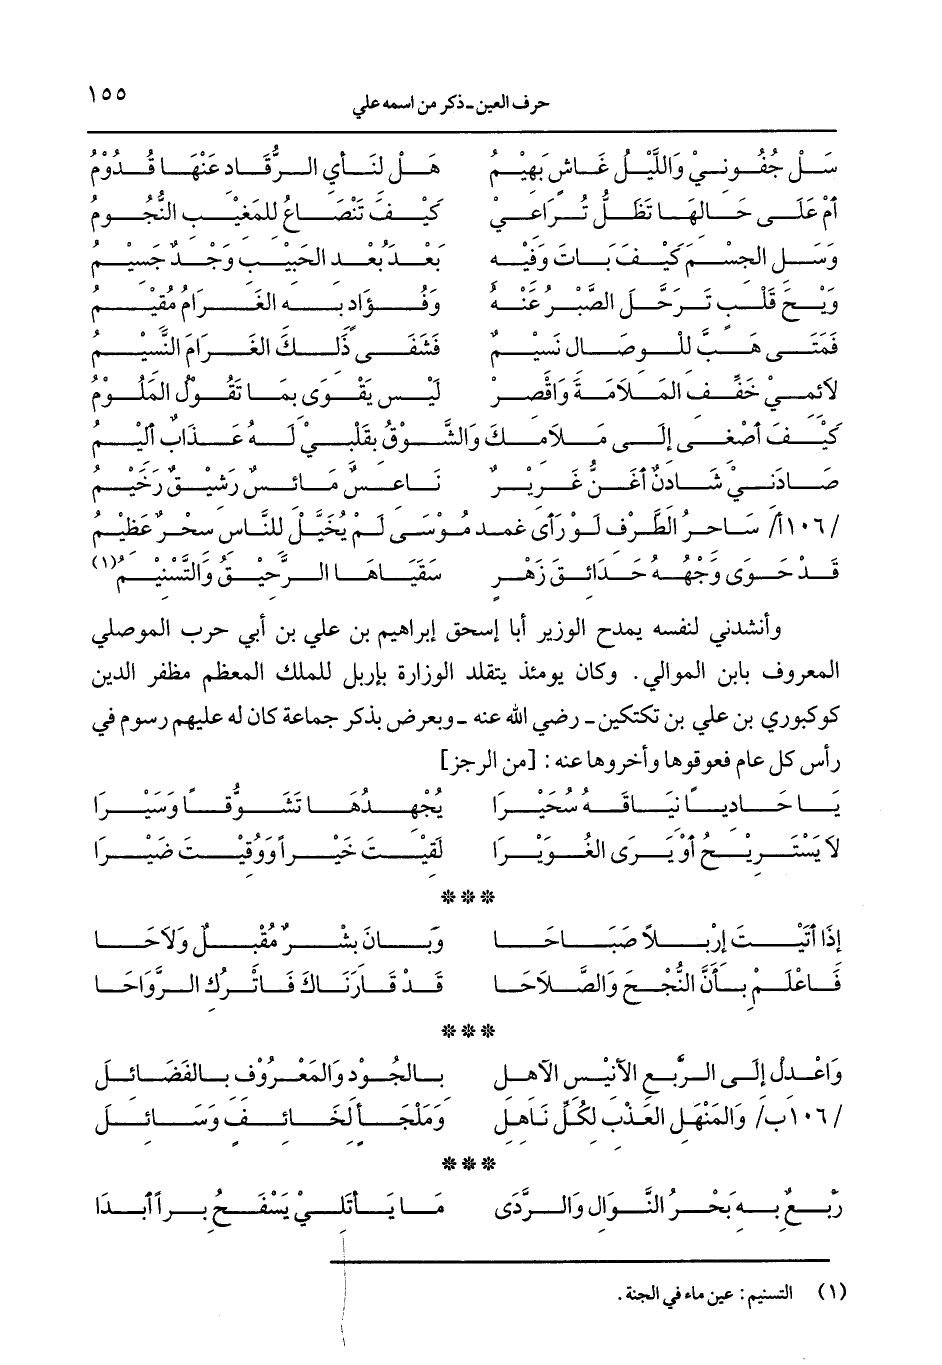 حرف العين ـ ذكر من اسمه علي ١٥٥
سَلْ جُفُونِيْ وَاللَّيْلُ غَاشٍ بَهِيْمُ هَلْ لنَأيِ الرُّقَادِ عَنْهَا قُدُوْمُ
أمْ عَلَى حَالِهَا تَظَلُّ تُرَاعيْ كَيْفَ تَنْصَاعُ للمَغِيْبِ النُّجُومُ
وَسَلِ الجِسْمَ كَيْفَ بَاتَ وَفيْهِ بَعْدَ بُعْدِ الحَبيْبِ وَجْدٌ جَسِيْمُ
وَيْحَ قَلْبٍ تَرَحَّلَ الصَّبْرُ عَنْهُ وَفُؤَادٍ بهِ الغَرَامُ مُقِيْمُ
فَمَتَى هَبَّ للْوِصَالِ نَسِيْمٌ فَشَفَى ذَلكَ الغَرَامَ النَّسِيْمُ
لاَئميْ خَفِّفِ المَلاَمَةَ وَاقْصِرْ لَيْسَ يَقْوَى بمَا تَقُولُ المَلُوْمُ
كَيْفَ أصْغَى إلَى مَلاَمِكَ وَالشَّوْقُ بقَلْبيْ لَهُ عَذَابٌ أليْمُ
صَادَنيْ شَادنٌ أغَنُّ غَرِيْرٌ نَاعِسٌ مَائسٌ رَشيْقٌ رَخيْمُ
/١٠٦أ/ سَاحِرُ الطَّرْفِ لَوْ رَأى غمد مُوْسَى لَمْ يُخَيَّلْ للنَّاسِ سحْرٌ عَظِيْمُ
قَدْ حَوَى وَجْهُهُ حَدَائقَ زَهْرٍ سَقْيَاهَا الرَّحِيْقُ وَالتَّسْنِيْمُ(١)
وأنشدني لنفسه يمدح الوزير أبا إسحق إبراهيم بن علي بن أبي حرب الموصلي
المعروف بابن الموالي. وكان يومئذ يتقلد الوزارة بإربل للملك المعظم مظفر الدين
كوكبوري بن علي بن تكتكين ـ رضي الله عنه ـ وبعرض بذكر جماعة كان له عليهم رسوم في
رأس كل عام فعوقوها وأخروها عنه: [من الرجز]
يَا حَاديًا نيَاقَهُ سُحَيْرَا يُجْهِدُهَا تَشَوُّقًا وَسَيْرَا
لاَ يَسْتَرِيْحُ أوْ يَرَى الغُوَيْرَا لَقيْتَ خَيْراً وَوُقِيْتَ ضَيْرَا
***
إذَا أتَيْتَ إرْبلاً صَبَاحَا وَبَانَ بشْرٌ مُقْبلٌ وَلاَحَا
فَاعْلَمْ بأنَّ النُّجْحَ وَالصَّلاَحَا قَدْ قَارَنَاكَ فَاتْرُكِ الرَّوَاحَا
***
وَاعْدلْ إلَى الرَّبعِ الأنيْسِ الآهلِ بالجُوْدِ وَالمَعْرُوْفِ بالفَضَائلِ
/١٠٦ب/ وَالمَنْهَلِ العَذْبِ لكُلِّ نَاهِلِ وَمَلْجَأ لخَائفٍ وَسَائلِ
***
رَبْعٌ بهِ بَحْرُ النَّوَالِ وَالرَّدَى مَا يَأتَليْ يَسْفَحُ براً أبَدَا
(١) التسنيم: عين ماء في الجنة.